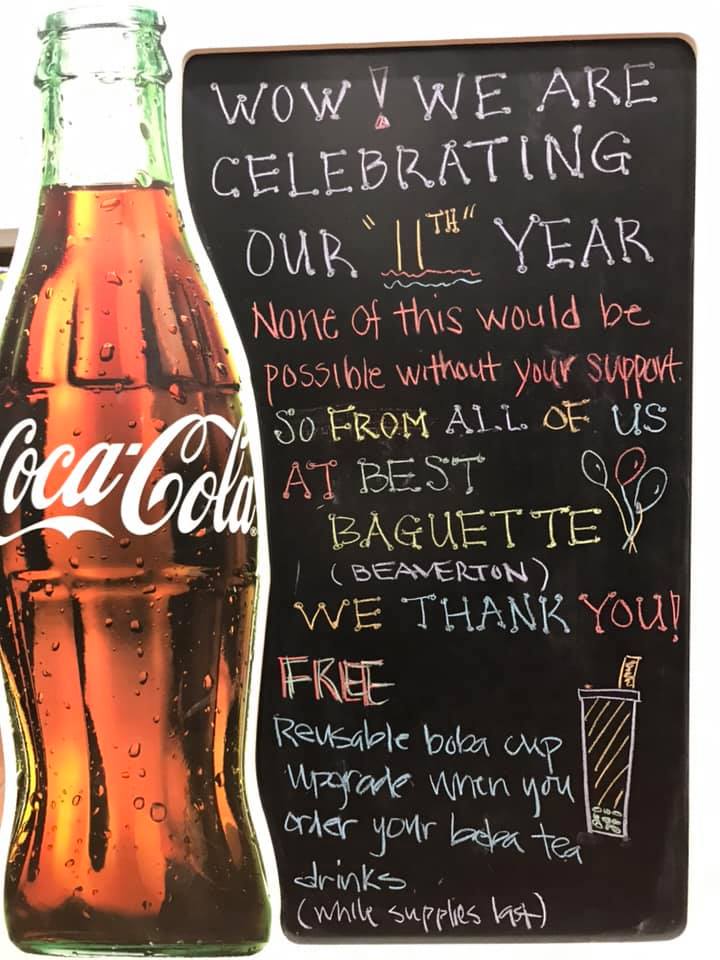 WOW! WE ARE
CELEBRATING
OUR "11TH" YEAR
None of this would be
possible without your support.
SO FROM ALL OF US
AT BEST
BAGUETTE
(BEAVERTON)
WE THANK YOU!
FREE
Reusable boba cup
upgrade when you
order your boba tea
drinks
(while supplies last)
Coca-Cola